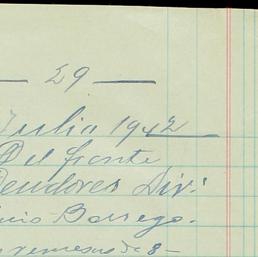 — 29 —
Julio 1942
Del frente
Deudores Div:
Borrego.
de 8-